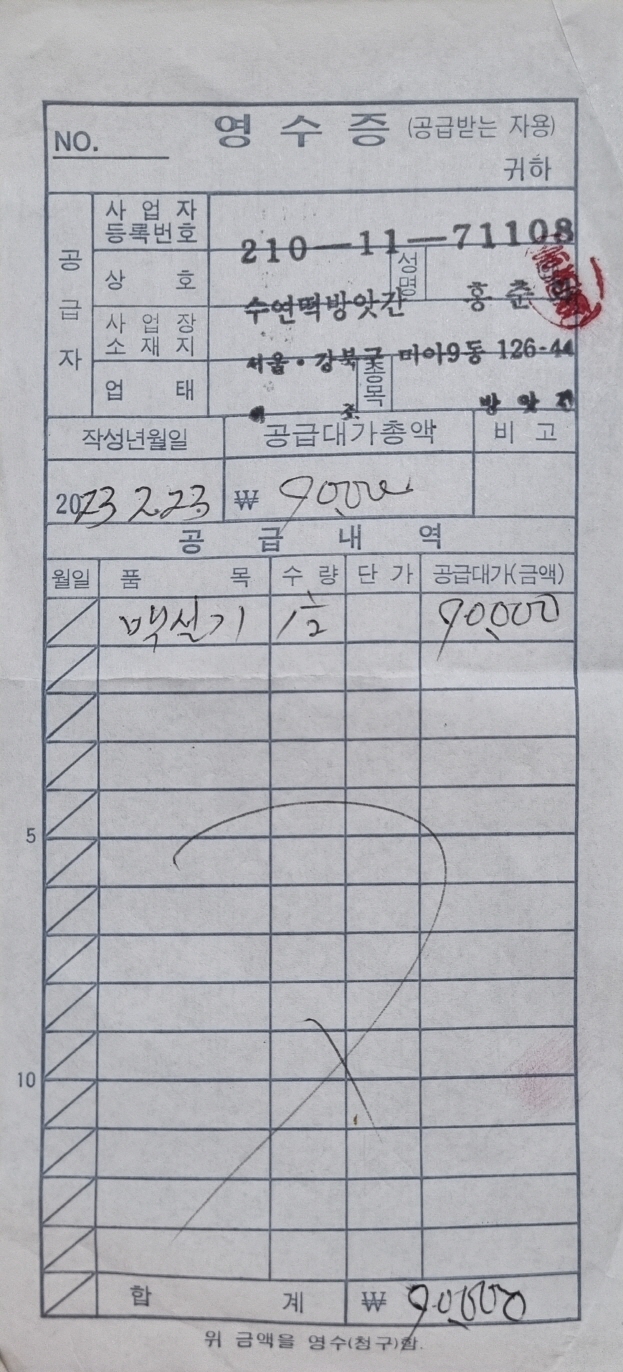 NO. 영수증 (공급받는 자용)
귀하
공급자
사업자등록번호 210-11-71108
상호 수연떡방앗간 성명 홍춘
사업장소재지 서울·강북구 미아9동 126-44
업태 제조 종목 방앗간
작성년월일 공급대가총액 비고
2023 2.23 ₩ 90,000
공급내역
월일 품목 수량 단가 공급대가(금액)
백설기 1 1/2 90,000
5
10
합계 ₩ 90,000
위 금액을 영수(청구)함.